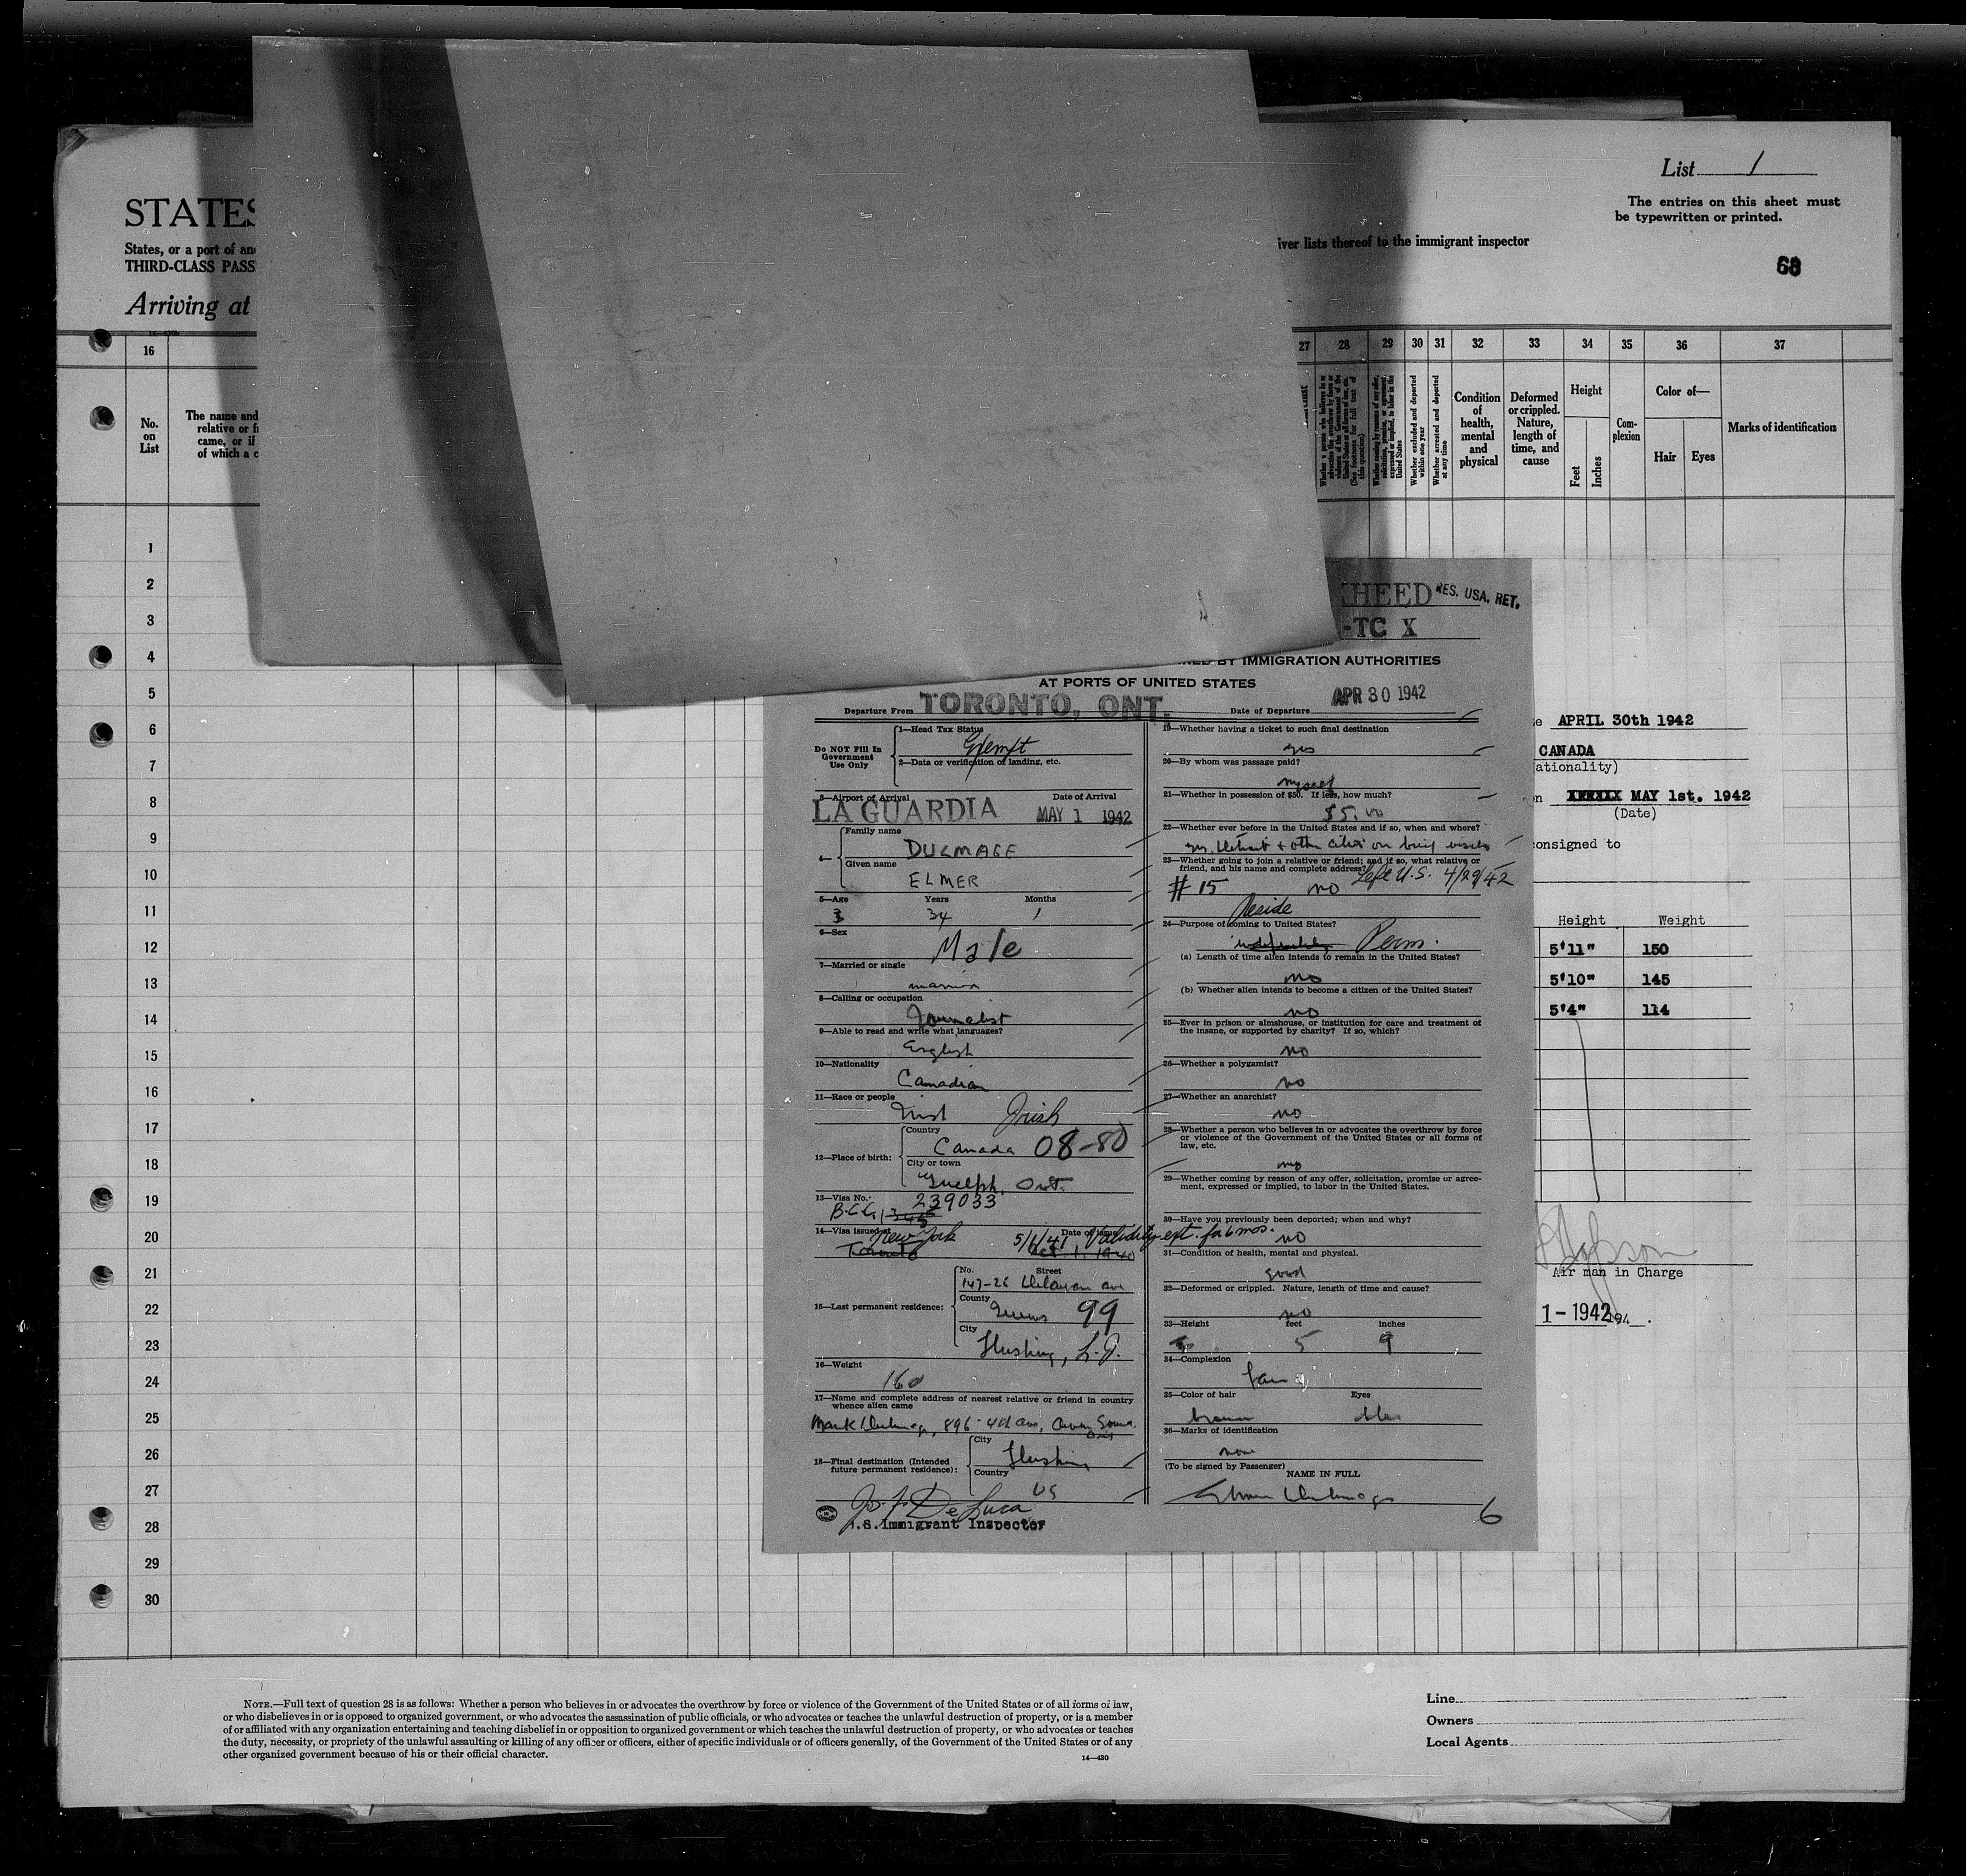 List 1
The entries on this sheet must
be typewritten or printed.
STATES
States, or a port of
THIRD-CLASS PASS
iver lists thereof to the immigrant inspector
68
Arriving at
16
27 28 29 30 31 32 33 34 35 36 37
No.
on
List
The name and
relative or
came, or if
of which a c
Whether excluded and deported
within one year
Whether arrested and deported
at any time
Condition
of
health,
mental
and
physical
Deformed
or crippled.
Nature,
length of
time, and
cause
Height
Feet
Inches
Com-
plexion
Color of—
Hair
Eyes
Marks of identification
1
2
3
4
5
6
7
8
9
10
11
12
13
14
15
16
17
18
19
20
21
22
23
24
25
26
27
28
29
30
KHEED RES. USA. RET.
-TC X
BY IMMIGRATION AUTHORITIES
AT PORTS OF UNITED STATES
Departure From TORONTO, ONT. Date of Departure APR 30 1942
Do NOT Fill In
Government
Use Only
1—Head Tax Status
Exempt
2—Data or verification of landing, etc.
3—Airport of Arrival Date of Arrival
LA GUARDIA MAY 1 1942
4—
Family name
DULMAGE
Given name
ELMER
5—Age Years Months
34 1
6—Sex
Male
7—Married or single
married
8—Calling or occupation
Journalist
9—Able to read and write what languages?
English
10—Nationality
Canadian
11—Race or people
Irish Irish
12—Place of birth:
Country
Canada 08-80
City or town
Guelph, Ont.
13—Visa No.
239033
B.C.C. 1345
14—Visa issued at Date of issue
New York 5/1/41 Validity ext. for 6 mos.
Toronto Oct. 1, 1940
15—Last permanent residence:
No. Street
147-26 Delaware ave
County
Queens 99
City
Flushing, L.I.
16—Weight
160
17—Name and complete address of nearest relative or friend in country
whence alien came
Mark Dulmage, 896-4th ave, Owen Sound
Ont
18—Final destination (Intended
future permanent residence):
City
Flushing
Country
US
J. F. De Luca
U.S. Immigrant Inspector
19—Whether having a ticket to such final destination
yes
20—By whom was passage paid?
myself
21—Whether in possession of $50. If less, how much?
$5.00
22—Whether ever before in the United States and if so, when and where?
yes, Detroit + other cities on brief visits
23—Whether going to join a relative or friend; and if so, what relative or
friend, and his name and complete address?
Left U.S. 4/29/42
#15 no
Reside
24—Purpose of coming to United States?
indefinitely Perm.
(a) Length of time alien intends to remain in the United States?
no
(b) Whether alien intends to become a citizen of the United States?
no
25—Ever in prison or almshouse, or institution for care and treatment of
the insane, or supported by charity? If so, which?
no
26—Whether a polygamist?
no
27—Whether an anarchist?
no
28—Whether a person who believes in or advocates the overthrow by force
or violence of the Government of the United States or all forms of
law, etc.
no
29—Whether coming by reason of any offer, solicitation, promise or agree-
ment, expressed or implied, to labor in the United States.
30—Have you previously been deported; when and why?
no
31—Condition of health, mental and physical.
good
32—Deformed or crippled. Nature, length of time and cause?
no
33—Height feet inches
5 9
34—Complexion
fair
35—Color of hair Eyes
brown blue
36—Marks of identification
none
(To be signed by Passenger)
NAME IN FULL
Elmer Dulmage
6
APRIL 30th 1942
CANADA
ationality)
MAY 1st. 1942
(Date)
consigned to
Height Weight
5'11" 150
5'10" 145
5'4" 114
Air man in Charge
1-1942 194 .
NOTE.—Full text of question 28 is as follows: Whether a person who believes in or advocates the overthrow by force or violence of the Government of the United States or of all forms of law,
or who disbelieves in or is opposed to organized government, or who advocates the assassination of public officials, or who advocates or teaches the unlawful destruction of property, or is a member
of or affiliated with any organization entertaining and teaching disbelief in or opposition to organized government or which teaches the unlawful destruction of property, or who advocates or teaches
the duty, necessity, or propriety of the unlawful assaulting or killing of any officer or officers, either of specific individuals or of officers generally, of the Government of the United States or of any
other organized government because of his or their official character.
14—430
Line
Owners
Local Agents